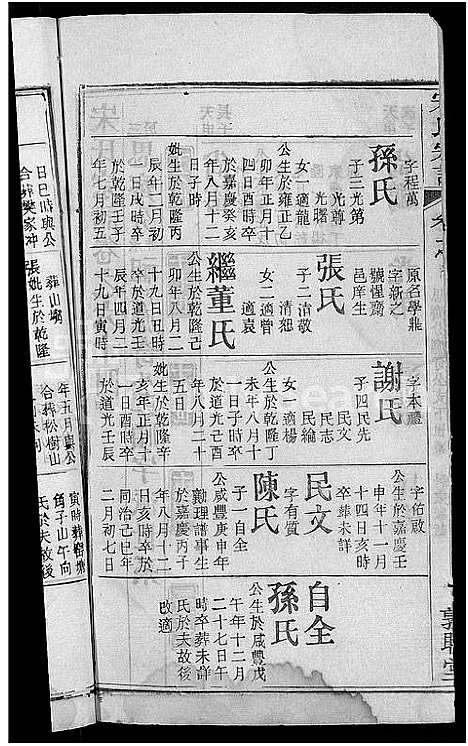 字程萬
孫氏
子三光第
光尊
光曙
女一適龍
公生於雍正乙
卯年正月十
四日酉時卒
於嘉慶癸亥
年八月十二
日子時
妣生於乾隆丙
辰年二月初
三日戌時卒
於乾隆壬子
年七月初五
原名學鼎
字新之
號惺齋
邑庠生
張氏
子二清敬
清恕
女二適曾
適袁
繼董氏
公生於乾隆己
卯年八月二
十九日丑時
卒於道光壬
辰年四月二
十九日寅時
字本禮
謝氏
子四民先
民志
民綸
女一適楊
公生於乾隆丁
未年八月十
一日子時卒
於道光己酉
年八月二十
五日
妣生於乾隆辛
亥年正月十
一日酉時卒
於道光壬辰
字佑啟
公生於嘉慶壬
申年十一月
十四日亥時
卒葬未詳
民文
字有質
陳氏
子一自全
公咸豐庚申年
勷理譜事生
於嘉慶丙子
年八月十二
日亥時卒於
同治己巳年
二月初七日
自全
孫氏
公生於咸豐戊
午年十二月
二十七日午
時卒葬未詳
氏於夫故後
改適
敦睦堂
日巳時與公
合葬樊家冲
葬山塝
張妣生於乾隆
年五月與公
合葬松樹山
寅時葬樹塘
角子山午向
氏於夫故後